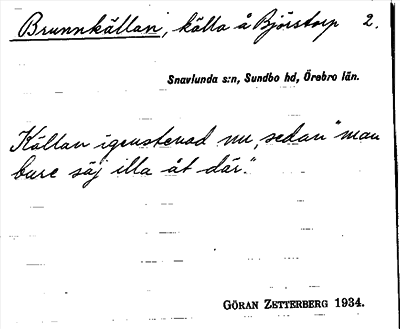 Brunnkällan, källa å Björstorp 2.
Snavlunda s:n, Sundbo hd, Örebro län.
Källan igenstenad nu, sedan "man
bure säj illa åt där."
GÖRAN ZETTERBERG 1934.